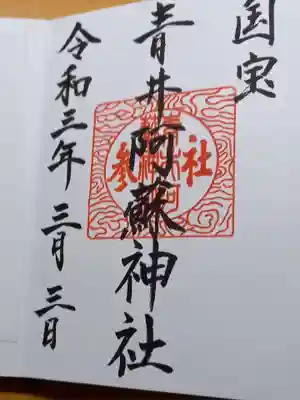 国宝
青井阿蘇神社
令和三年 三月 三日